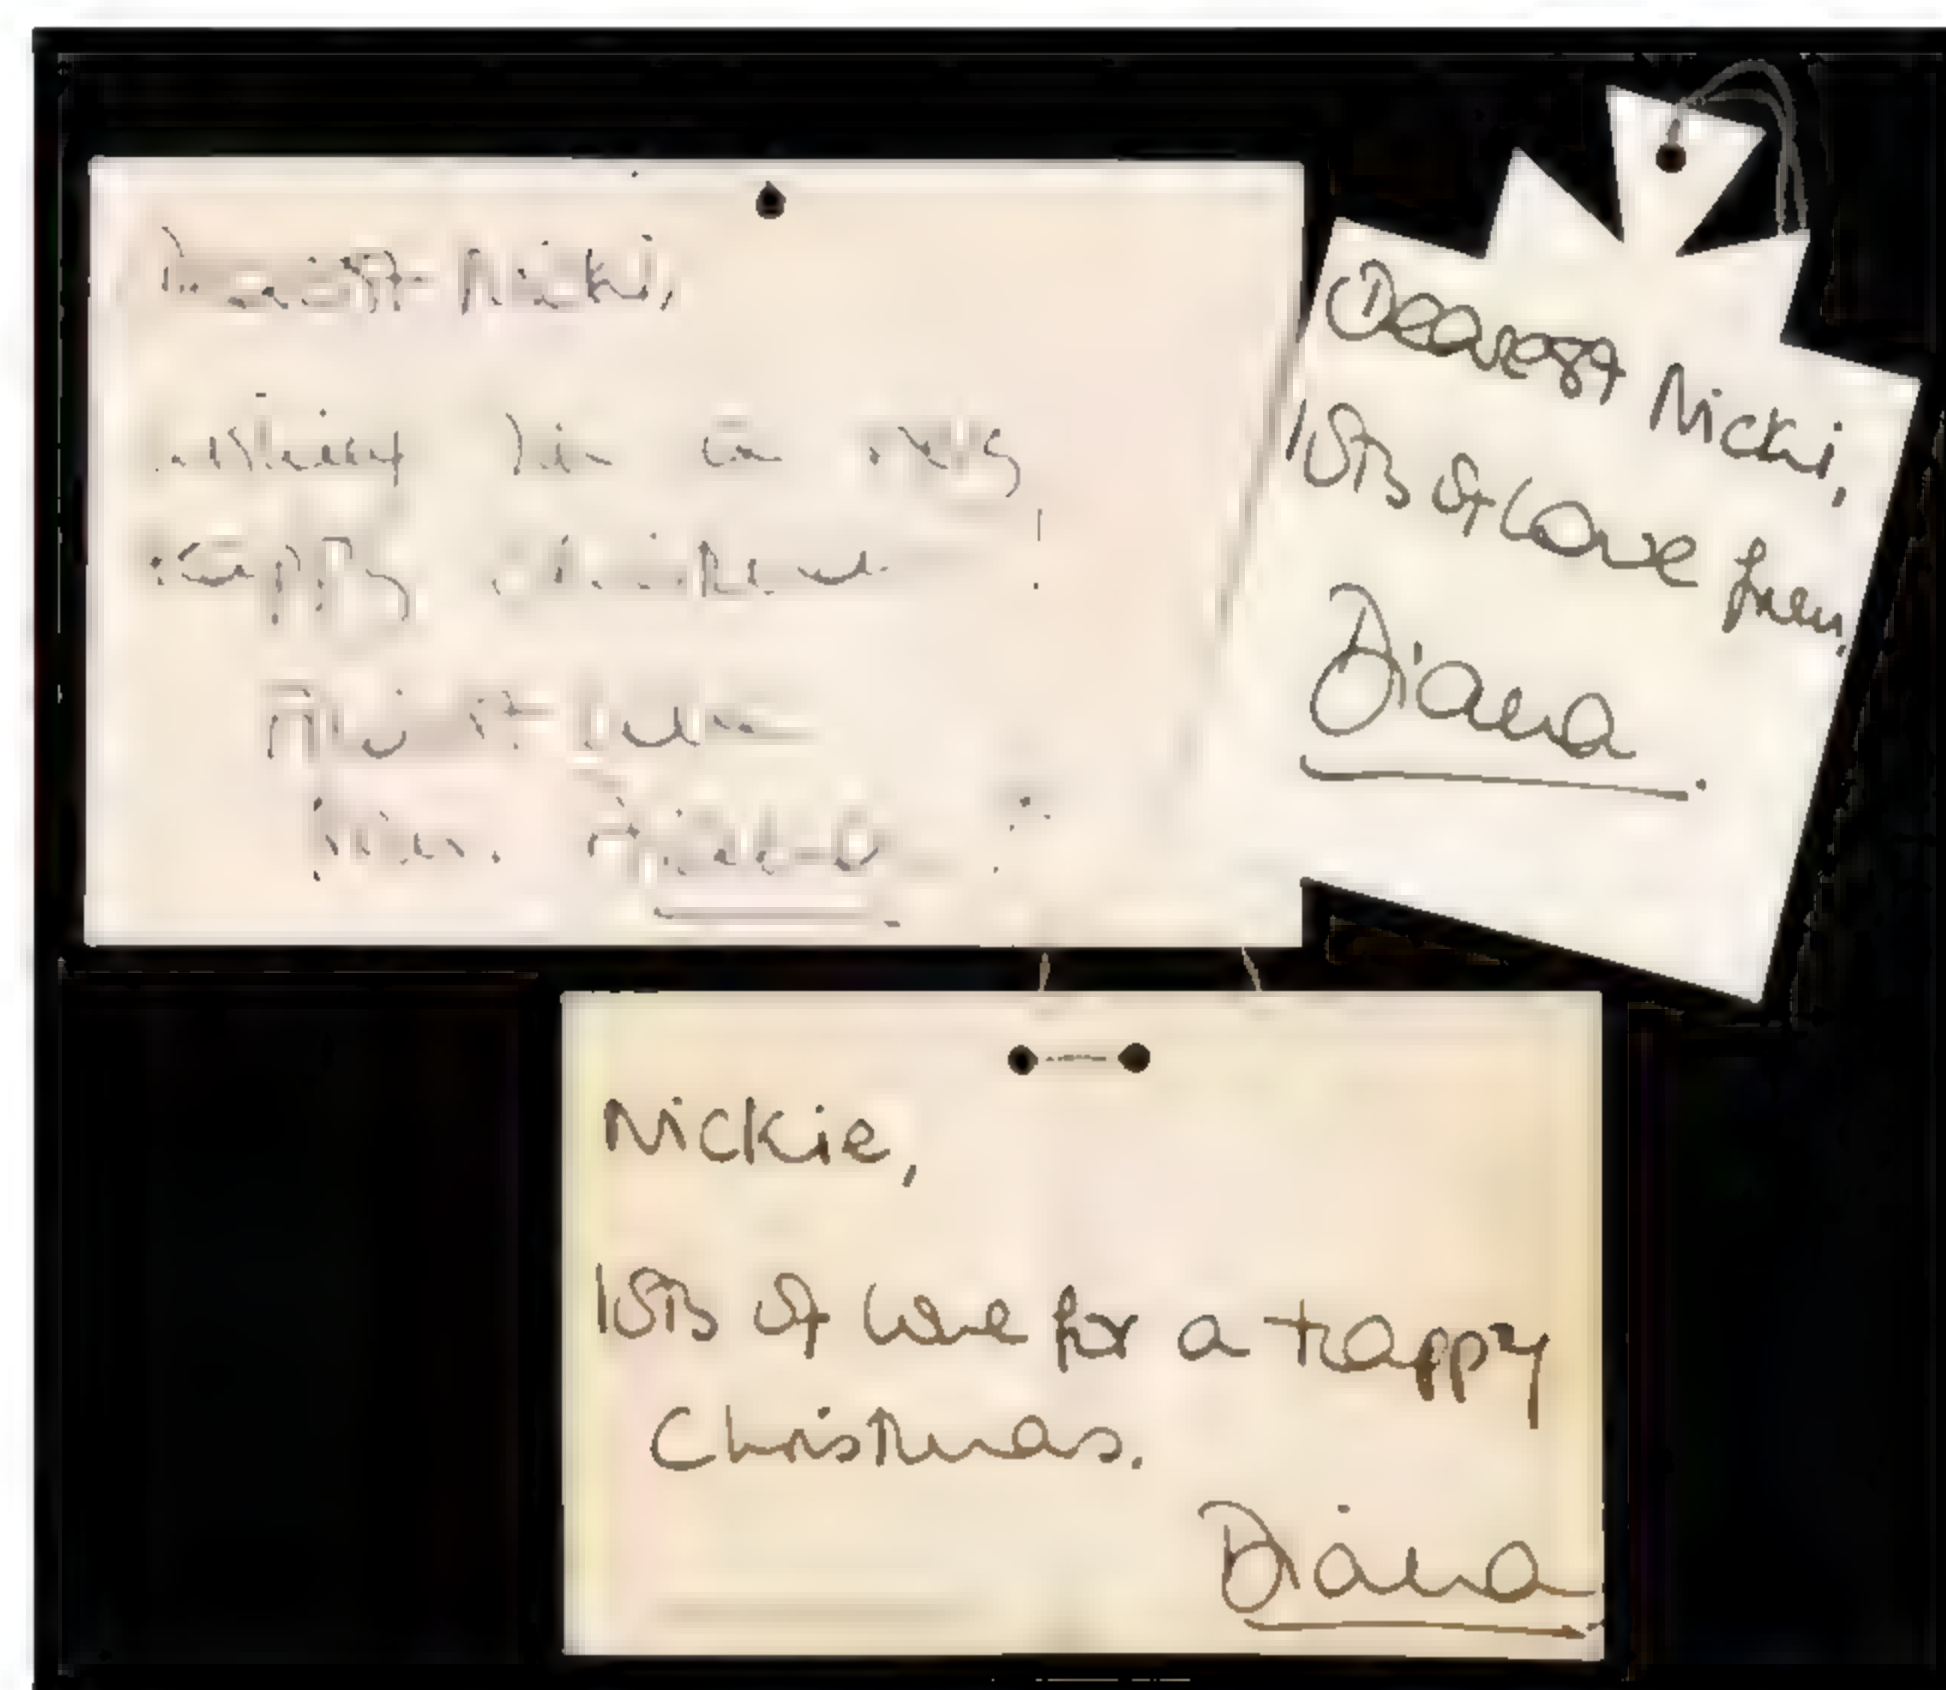 Dearest Nicki,
Wishing you a very
happy Christmas!
from
Dearest Nicki,
lots of love from
Diana
Nickie,
lots of love for a Happy
Christmas.
Diana